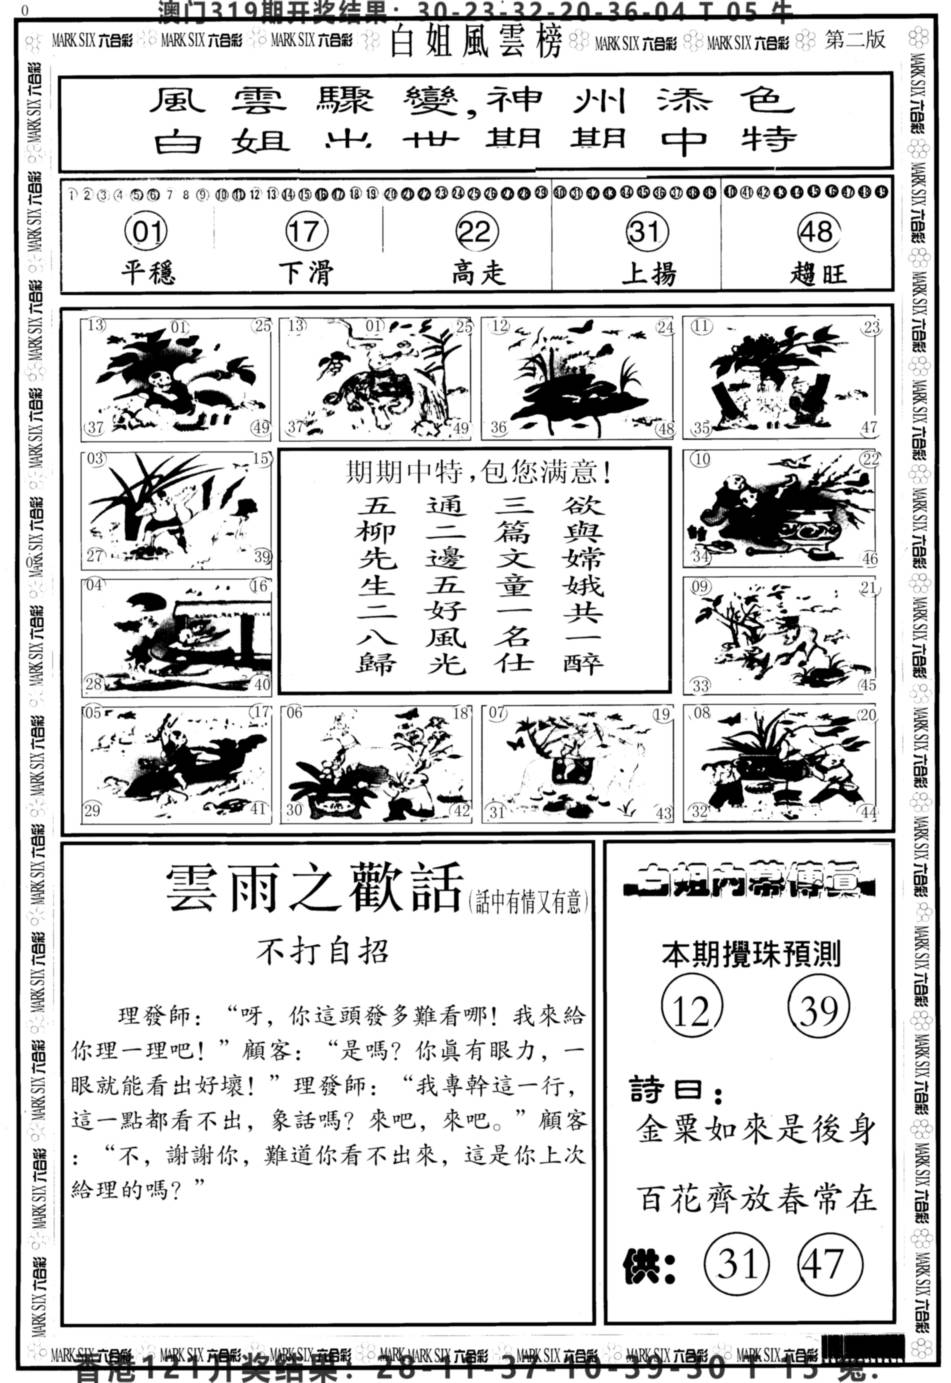 0
澳门319期开奖结果：30-23-32-20-36-04 T 05 牛
MARK SIX 六合彩 MARK SIX 六合彩 MARK SIX 六合彩 白姐風雲榜 MARK SIX 六合彩 MARK SIX 六合彩 第二版
風雲驟變,神州添色
白姐出世期期中特
01 17 22 31 48
平穩 下滑 高走 上揚 趨旺
13 01 25 13 01 25 12 24 11 23
37 49 37 49 36 48 35 47
03 15
27 39
期期中特,包您满意!
五通三欲
柳二篇與
先邊文嫦
生五童娥
二好一共
八風名一
歸光仕醉
10 22
34 46
04 16
28 40
09 21
33 45
05 17 06 18 07 19 08 20
29 41 30 42 31 43 32 44
雲雨之歡話(話中有情又有意)
不打自招
理發師：“呀，你這頭發多難看哪！我來給
你理一理吧！”顧客：“是嗎？你眞有眼力，一
眼就能看出好壞！”理發師：“我專幹這一行，
這一點都看不出，象話嗎？來吧，來吧。”顧客
：“不，謝謝你，難道你看不出來，這是你上次
給理的嗎？”
白姐內幕傳真
本期攪珠預測
12 39
詩曰：
金粟如來是後身
百花齊放春常在
供：31 47
MARK SIX 六合彩 MARK SIX 六合彩 MARK SIX 六合彩 MARK SIX 六合彩 MARK SIX 六合彩 MARK SIX 六合彩 MARK SIX 六合彩
香港121开奖结果：28-11-37-10-39-30 T 15 兔.